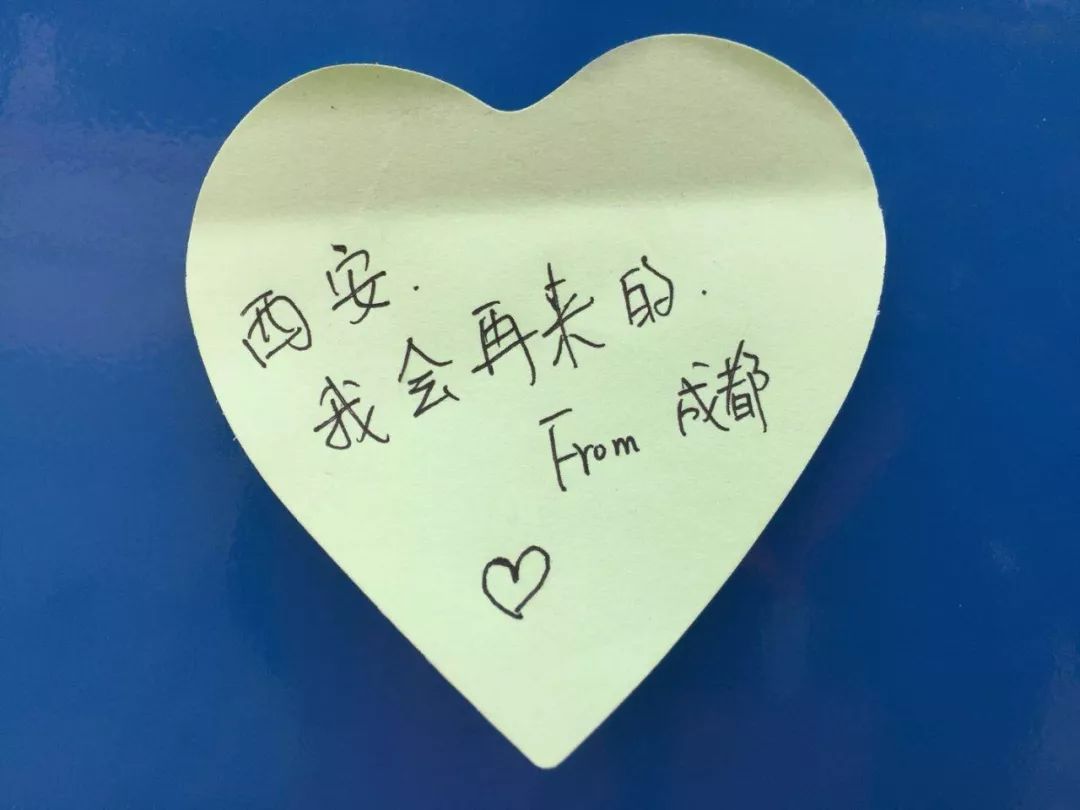 西安.
我会再来的.
From 成都